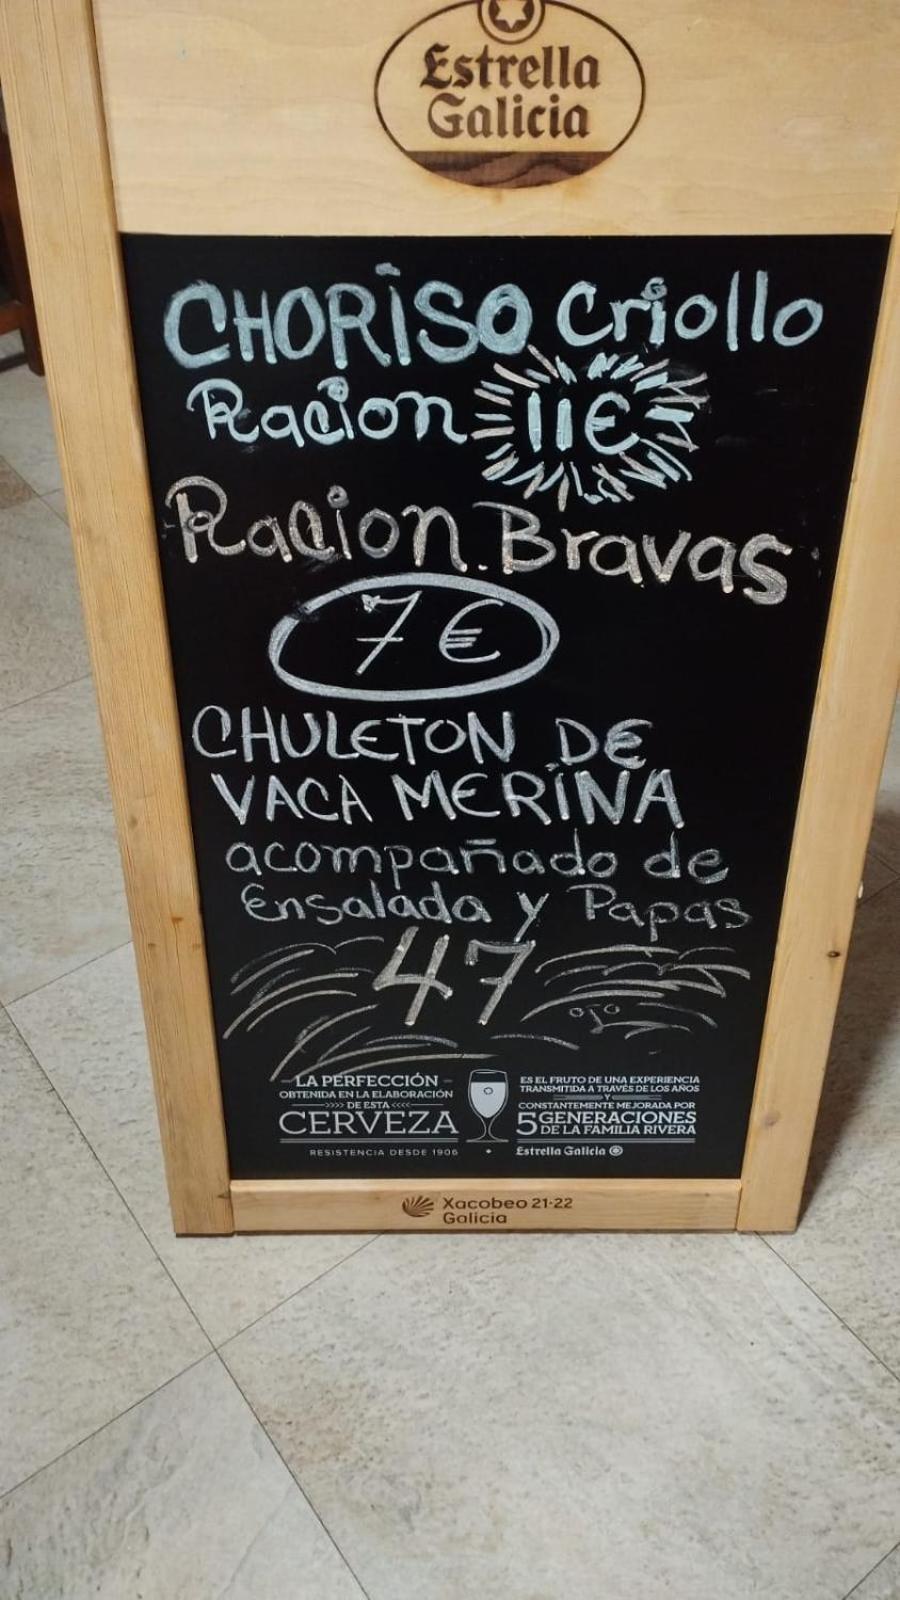 Estrella
Galicia
CHORISO Criollo
Racion 11€
Racion. Bravas
7€
CHULETON DE
VACA MERINA
acompañado de
Ensalada y Papas
47
ojo
LA PERFECCIÓN
OBTENIDA EN LA ELABORACIÓN
>>>> DE ESTA <<<<
CERVEZA
RESISTENCIA DESDE 1906
ES EL FRUTO DE UNA EXPERIENCIA
TRANSMITIDA A TRAVÉS DE LOS AÑOS
Y
CONSTANTEMENTE MEJORADA POR
5 GENERACIONES
DE LA FAMILIA RIVERA
Estrella Galicia
Xacobeo 21·22
Galicia